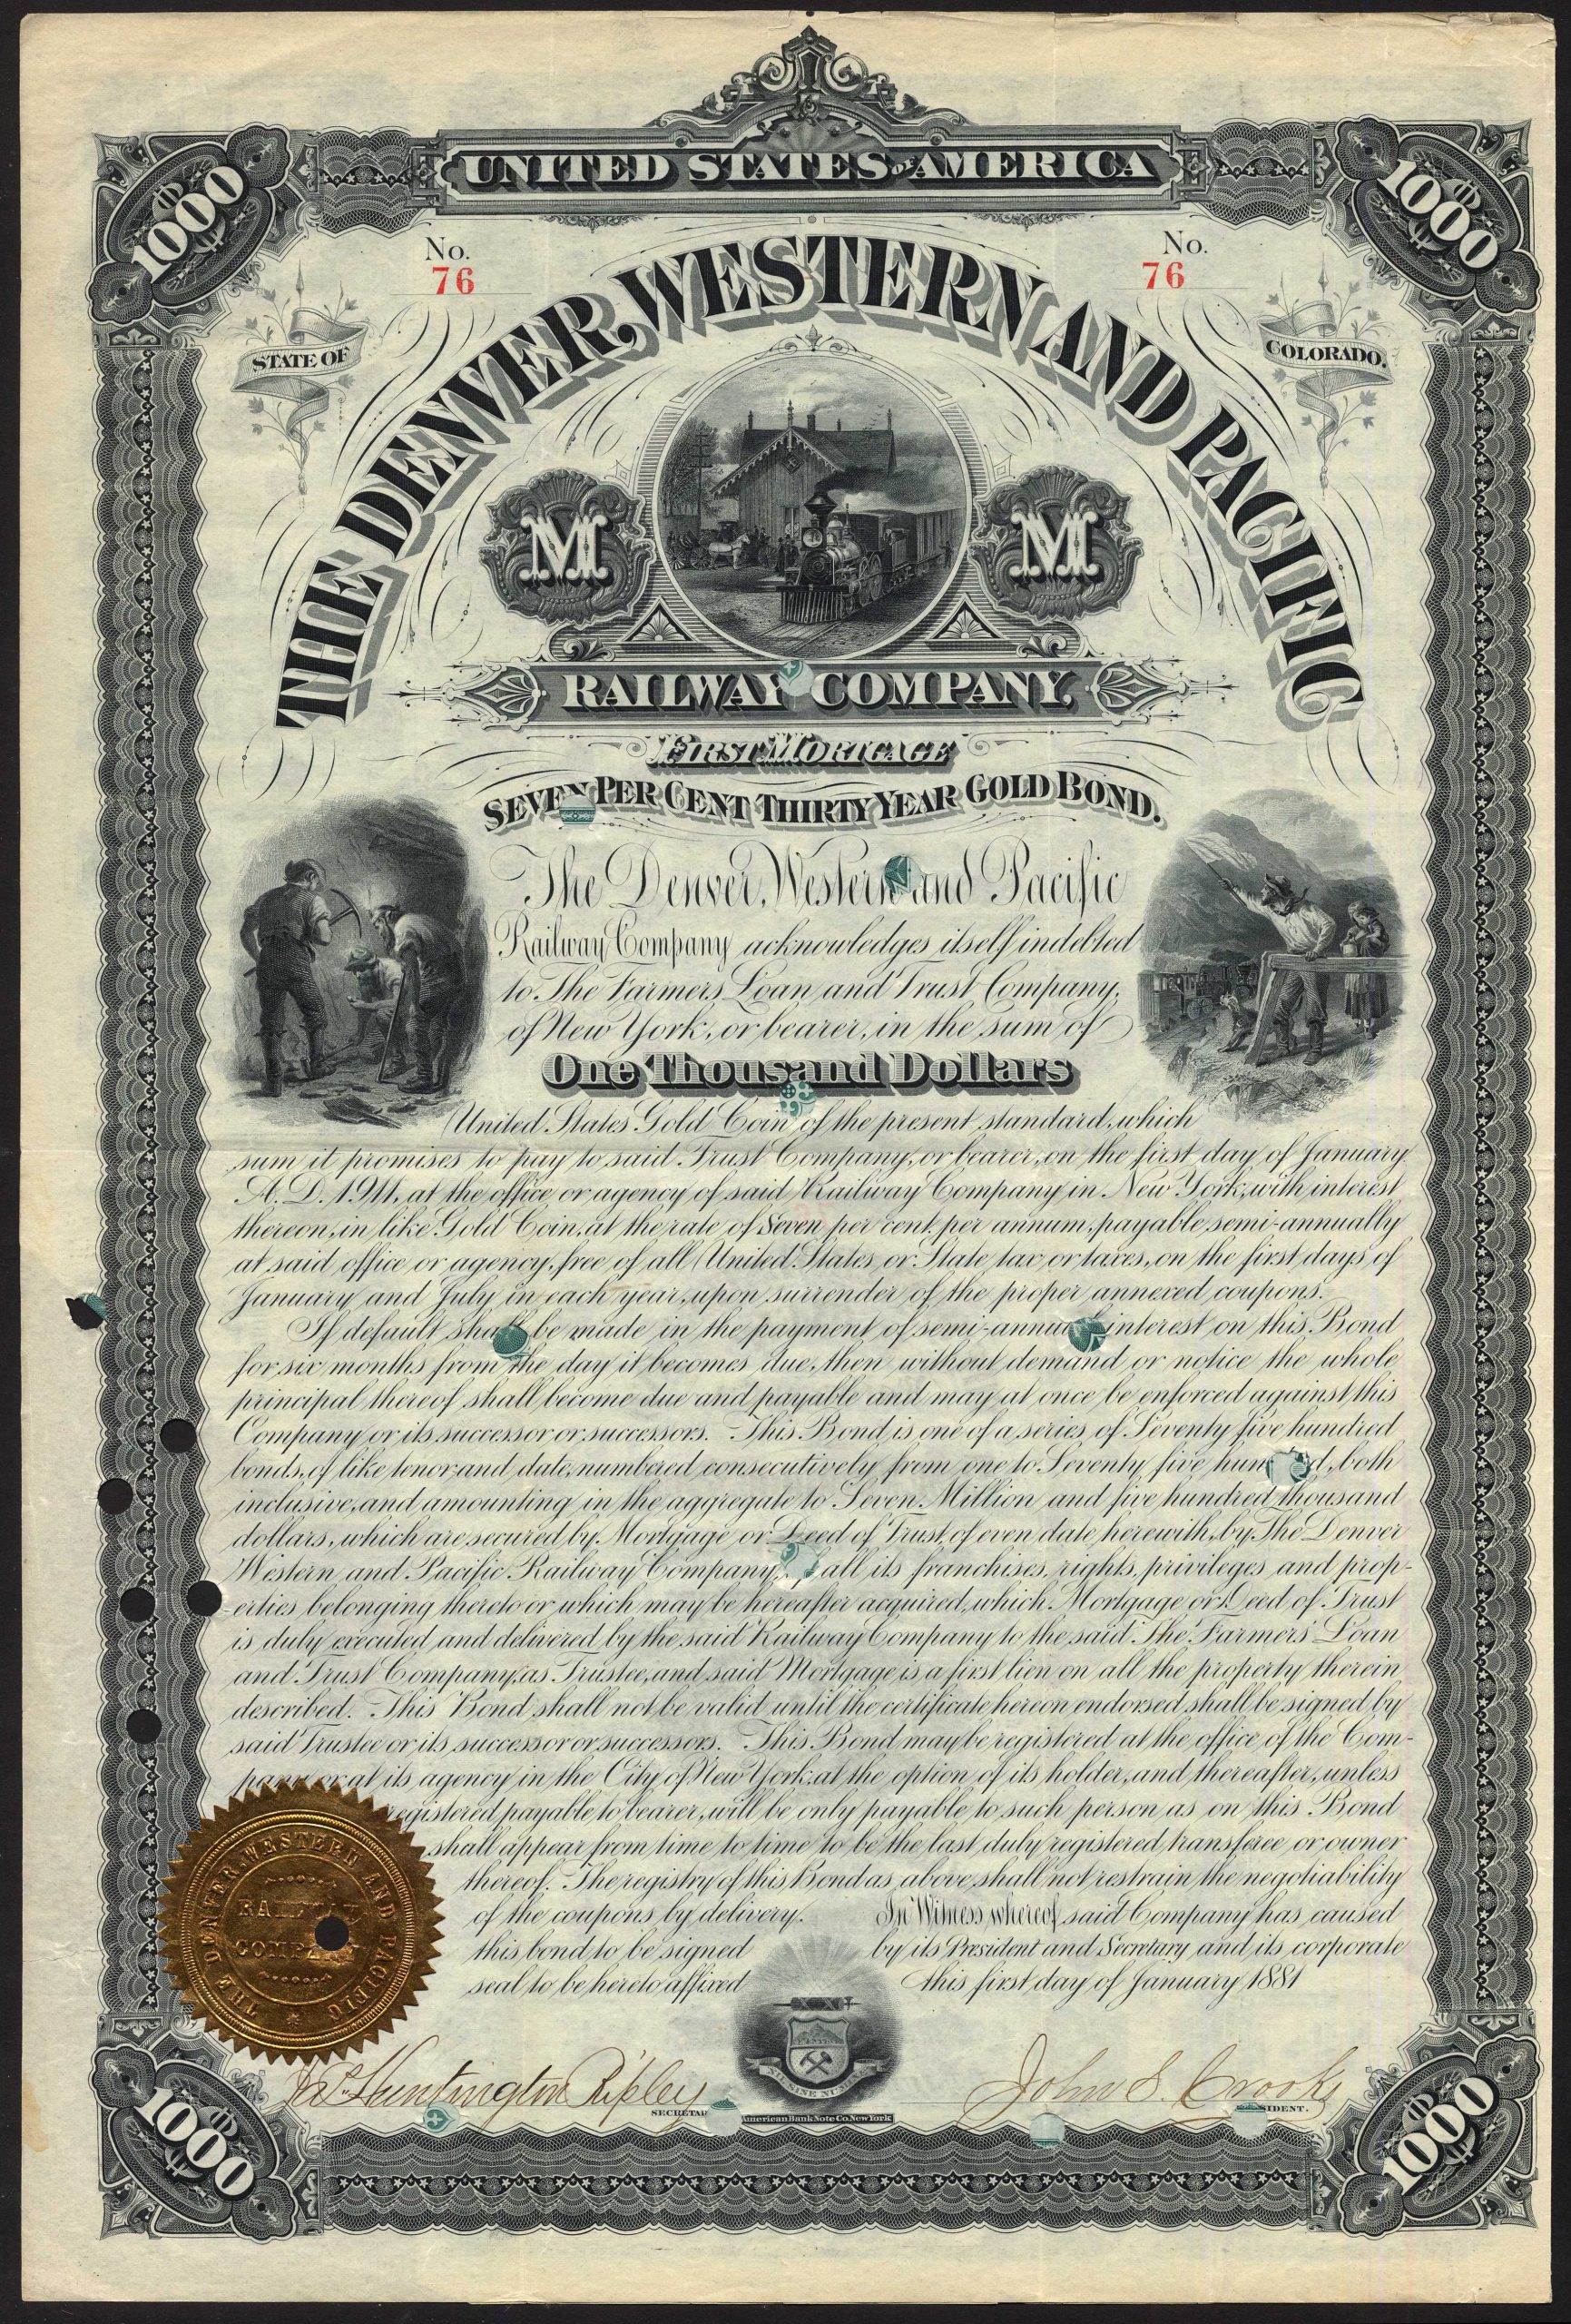 UNITED STATES OF AMERICA
1000
1000
No.
76
No.
76
STATE OF
COLORADO.
THE DENVER, WESTERN AND PACIFIC
M
M
RAILWAY COMPANY,
FIRST MORTGAGE
SEVEN PER CENT THIRTY YEAR GOLD BOND.
The Denver, Western and Pacific
Railway Company acknowledges itself indebted
to The Farmers Loan and Trust Company,
of New York, or bearer, in the sum of
One Thousand Dollars
United States Gold Coin of the present standard, which
sum it promises to pay to said Trust Company, or bearer, on the first day of January
A.D. 1911, at the office or agency of said Railway Company in New York, with interest
thereon, in like Gold Coin, at the rate of Seven per cent. per annum, payable semi-annually
at said office or agency, free of all United States or State tax or taxes, on the first days of
January and July in each year, upon surrender of the proper annexed coupons.
If default shall be made in the payment of semi-annual interest on this Bond
for six months from the day it becomes due, then without demand or notice the whole
principal thereof shall become due and payable and may at once be enforced against this
Company or its successor or successors. This Bond is one of a series of Seventy five hundred
bonds, of like tenor and date, numbered consecutively from one to Seventy five hundred, both
inclusive, and amounting in the aggregate to Seven Million and five hundred thousand
dollars, which are secured by Mortgage or Deed of Trust, of even date herewith, by The Denver
Western and Pacific Railway Company, of all its franchises, rights, privileges and prop-
erties belonging thereto or which may be hereafter acquired, which Mortgage or Deed of Trust
is duly executed and delivered by the said Railway Company to the said The Farmers' Loan
and Trust Company, as Trustee, and said Mortgage is a first lien on all the property therein
described. This Bond shall not be valid until the certificate hereon endorsed shall be signed by
said Trustee or its successor or successors. This Bond may be registered at the office of the Com-
pany or at its agency in the City of New York, at the option of its holder, and thereafter, unless
registered payable to bearer, will be only payable to such person as on this Bond
shall appear from time to time to be the last duly registered transferee or owner
thereof. The registry of this Bond as above shall not restrain the negotiability
of the coupons by delivery. In Witness whereof said Company has caused
this bond to be signed by its President and Secretary and its corporate
seal to be hereto affixed this first day of January 1881
THE DENVER, WESTERN AND PACIFIC
RAILWAY
COMPANY
NIL SINE NUMINE
Huntington Ripley
SECRETARY
John S. Crooks
PRESIDENT.
American Bank Note Co. New York
1000
1000